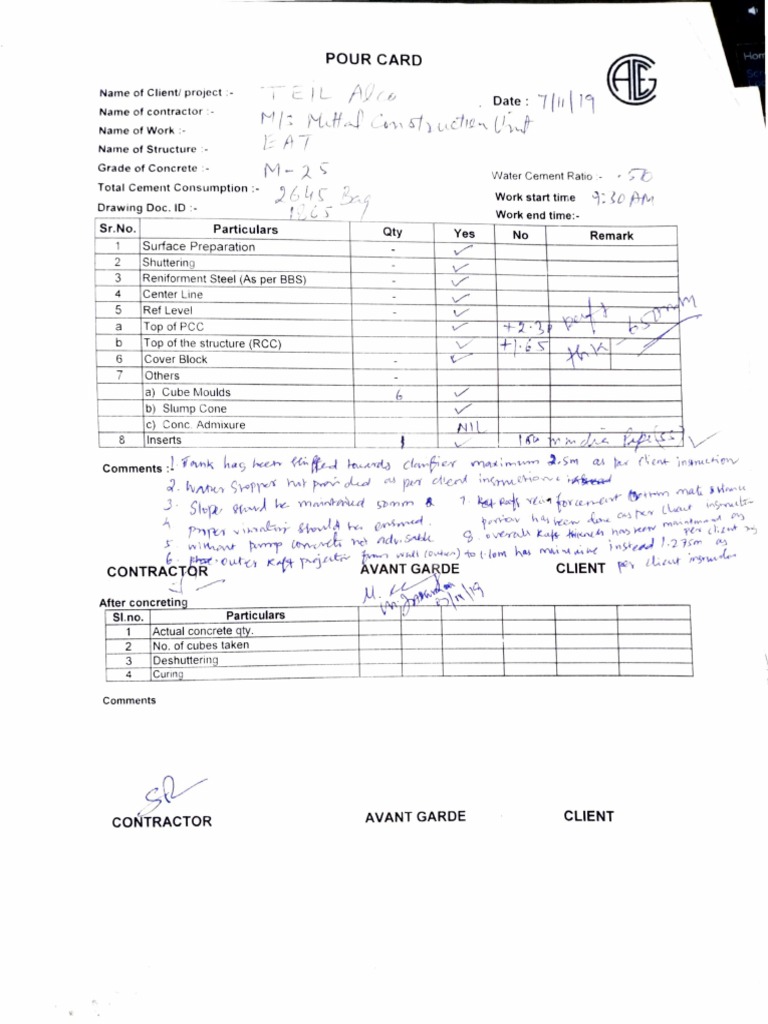 POUR CARD
ACG
Name of Client/ project :- TEIL Alco
Date : 7/11/19
Name of contractor :- M/s Mittal Construction Unit
Name of Work :-
Name of Structure :- EAT
Grade of Concrete :- M-25
Water Cement Ratio :- .50
Total Cement Consumption :- 2645 Bag
Work start time 9:30 AM
Drawing Doc. ID :- 1865
Work end time:-
Sr.No. Particulars Qty Yes No Remark
1 Surface Preparation - ✓
2 Shuttering - ✓
3 Reniforment Steel (As per BBS) - ✓
4 Center Line - ✓
5 Ref Level - ✓
a Top of PCC ✓ +2.30 raft
b Top of the structure (RCC) ✓ +1.65 thk - 650mm
6 Cover Block - ✓
7 Others -
a) Cube Moulds 6 ✓
b) Slump Cone ✓
c) Conc. Admixure NIL
8 Inserts 1 ✓ Pipe(SS) ✓
Comments :- 1. Tank has been shifted towards clarifier maximum 2.5m as per client instruction
2. Water Stopper not provided as per client instruction
3. Slope should be maintained 50mm
4. proper vibrating should be ensured.
5. without pump concrete not advisable
6. outer Raft projection from wall (outer) to 1.10m has instead 1.275m as per client instruction
7. Raft reinforcement bottom portion has been done as per client instruction
8. overall Raft thickness has been maintained as per client
CONTRACTOR AVANT GARDE CLIENT
17/11/19
After concreting
Sl.no. Particulars
1 Actual concrete qty.
2 No. of cubes taken
3 Deshuttering
4 Curing
Comments
SR
CONTRACTOR AVANT GARDE CLIENT